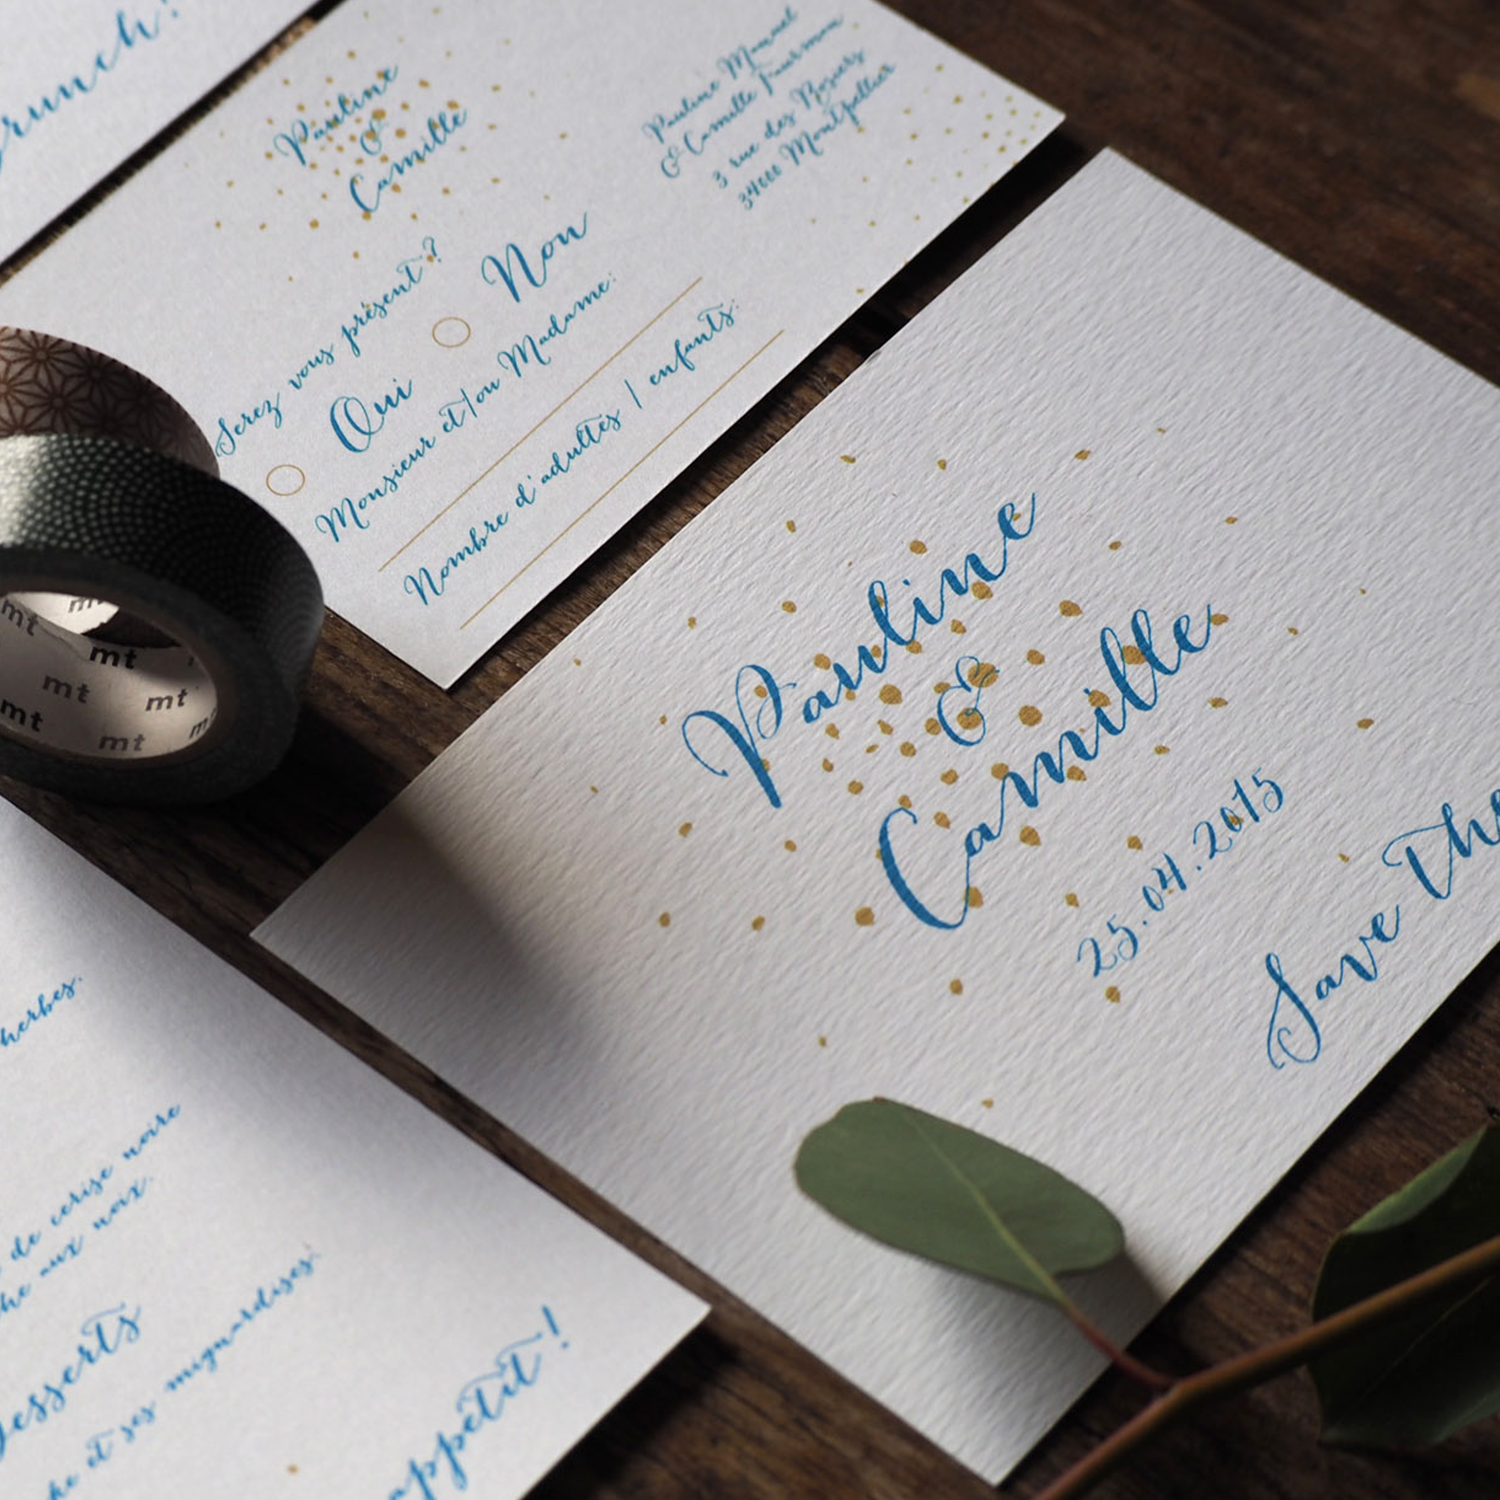 runch!
Pauline
&
Camille
Pauline Manuel
& Camille Fuurman
3 rue des Rosiers
34000 Montpellier
Serez vous présent ?
Oui
Non
Monsieur et/ou Madame:
Nombre d'adultes / enfants:
mt
mt
mt
mt
mt
mt
Pauline
&
Camille
25.04.2015
Save The
herbes.
de cerise noire
he aux noix.
esserts
he et ses mignardises.
appetit !